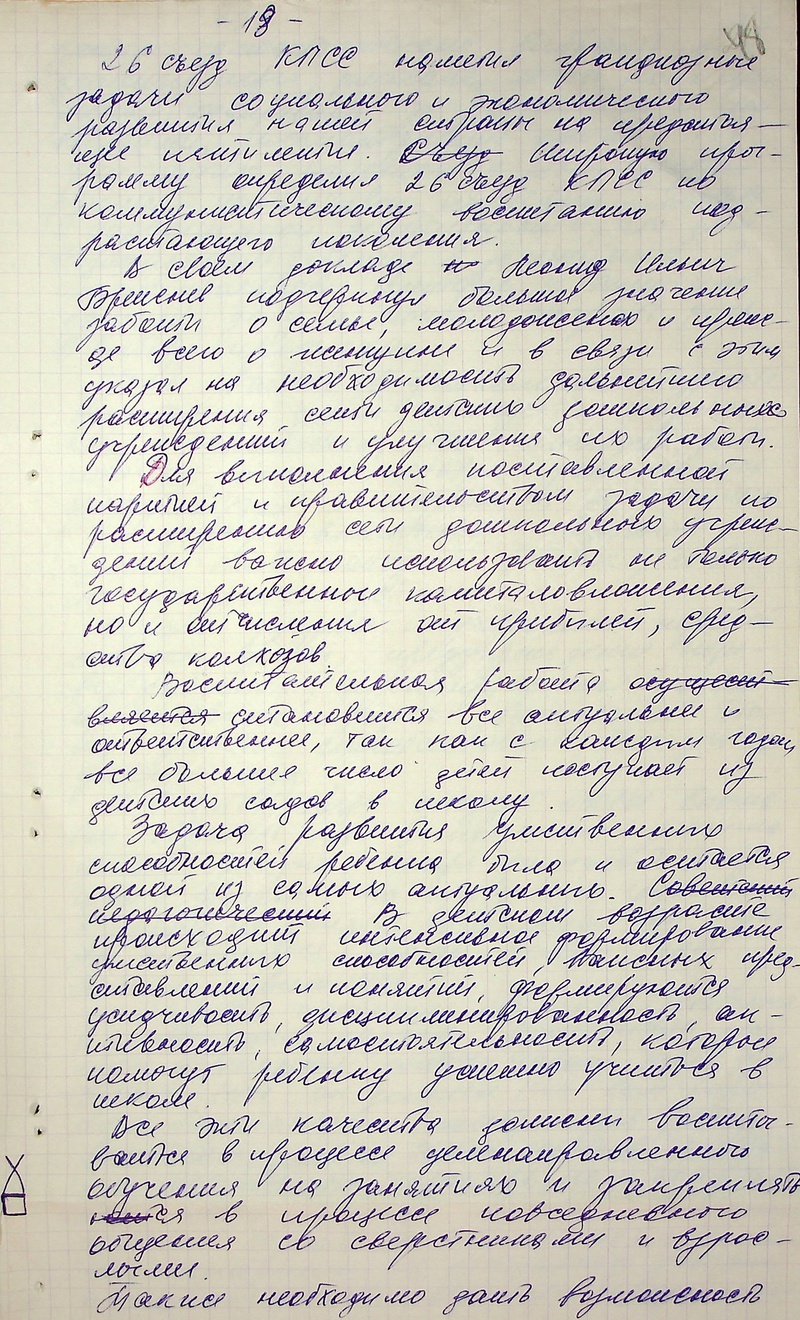 - 19 -
48
26 съезд КПСС наметил грандиозные
задачи социального и экономического
развития нашей страны на предстоя-
щее пятилетие. Съезд Широкую прог-
рамму определил 26 съезд КПСС по
коммунистическому воспитанию под-
растающего поколения.
В своем докладе Леонид Ильич
Брежнев подчеркнул большое значение
заботы о семье, молодоженах и преж-
де всего о женщине и в связи с этим
указал на необходимость дальнейшего
расширения сети детских дошкольных
учреждений и улучшения их работы.
Для выполнения поставленной
партией и правительством задачи по
расширению сети дошкольных учреж-
дений важно использовать не только
государственные капиталовложения,
но и отчисления от прибылей, сред-
ства колхозов.
Воспитательная работа осущест-
вляется становится все актуальнее и
ответственнее, так как с каждым годом
все большее число детей поступает из
детских садов в школу.
Задача развития умственных
способностей ребенка была и остается
одной из самых актуальных. Советский
педагогический В детском возрасте
происходит интенсивное формирование
умственных способностей, важных пред-
ставлений и понятий, формируются
усидчивость, дисциплинированность, ак-
тивность, самостоятельность, которые
помогут ребенку успешно учиться в
школе.
Все эти качества должны воспиты-
ваться в процессе целенаправленного
обучения на занятиях и закреплять
ся в процессе повседневного
общения со сверстниками и взрос-
лыми.
Также необходимо дать возможность